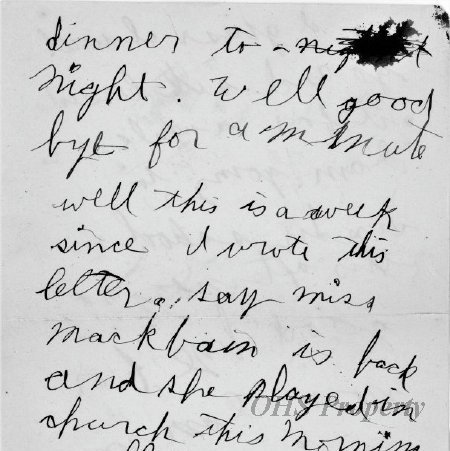 dinner to-night
Night. Well good
bye for a minute
well this is a week
since I wrote this
letter. say miss
Mackbain is back
and she played in
OHS Property
church this Morning